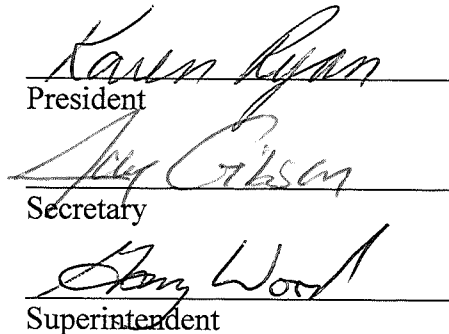 Karen Ryan
President
Gibson
Secretary
Gary Wood
Superintendent